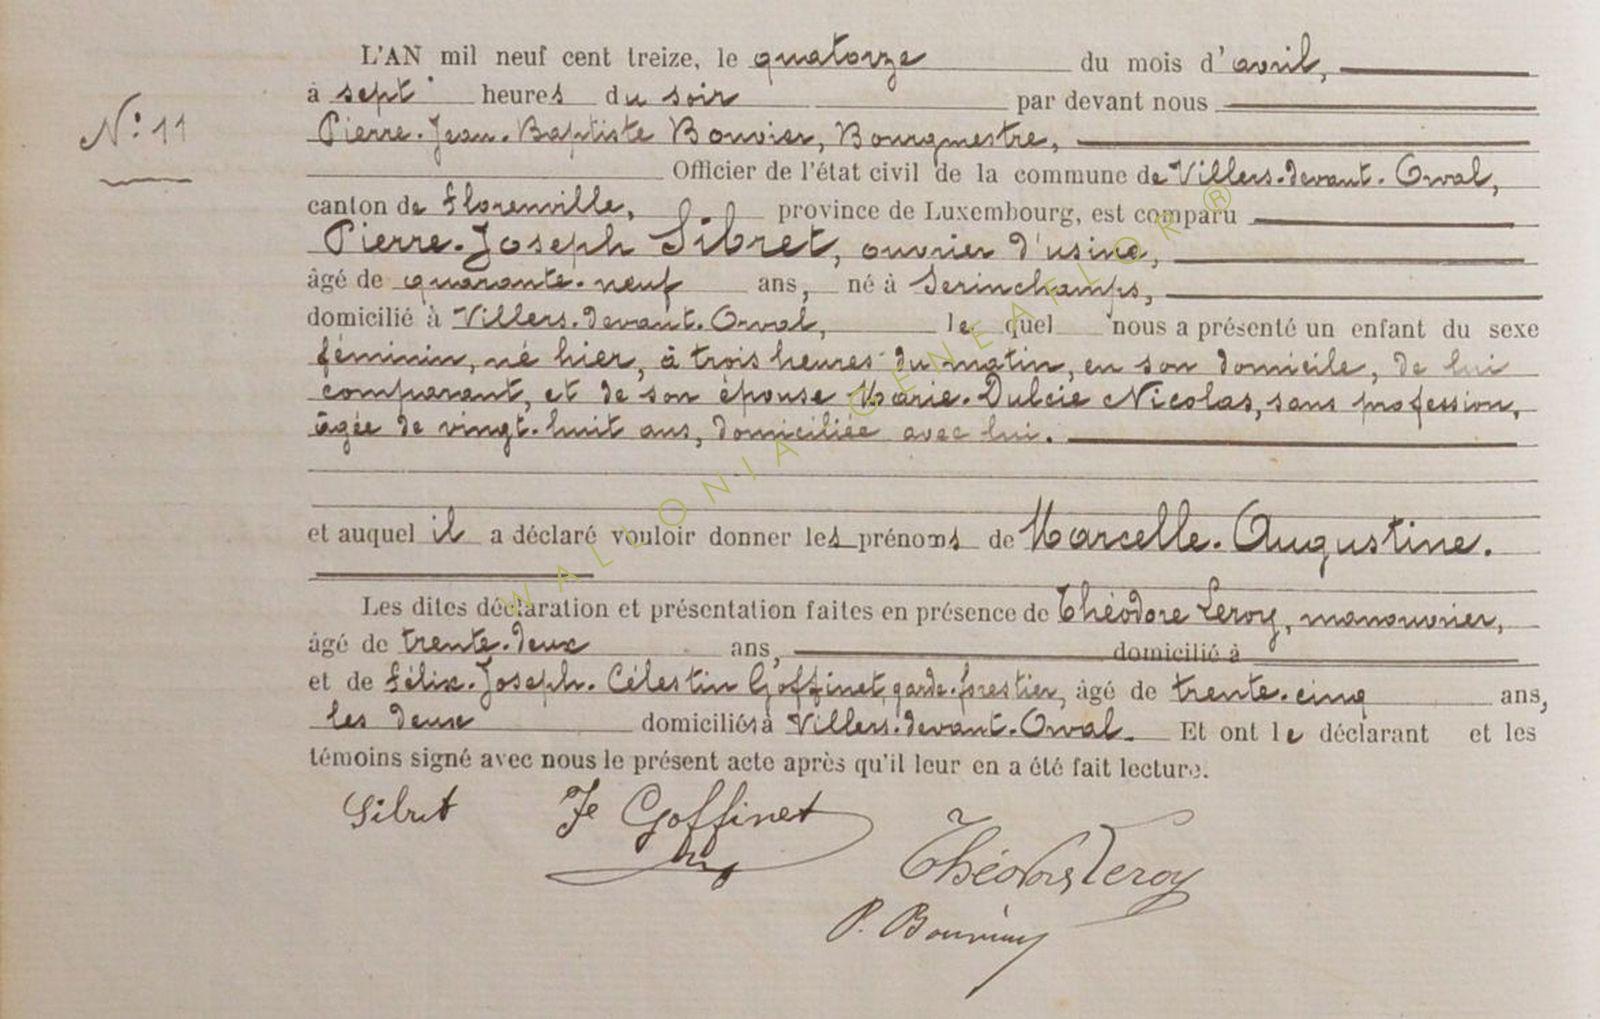 L'AN mil neuf cent treize, le quatorze du mois d'avril,
N.º 11
à sept heures du soir par devant nous
Pierre-Jean-Baptiste Bouvier, Bourgmestre,
Officier de l'état civil de la commune de Villers-devant-Orval,
canton de Florenville, province de Luxembourg, est comparu
Pierre-Joseph Sibret, ouvrier d'usine,
âgé de quarante-neuf ans, né à Serinchamps,
domicilié à Villers-devant-Orval, lequel nous a présenté un enfant du sexe
féminin, né hier, à trois heures du matin, en son domicile, de lui
comparant, et de son épouse Marie-Dulcie Nicolas, sans profession,
âgée de vingt-huit ans, domiciliée avec lui.
et auquel il a déclaré vouloir donner les prénoms de Marcelle-Augustine.
Les dites déclaration et présentation faites en présence de Théodore Leroy, manouvrier,
âgé de trente-deux ans, domicilié à
et de Félix-Joseph-Célestin Goffinet, garde-forestier, âgé de trente-cinq ans,
les deux domiciliés à Villers-devant-Orval. Et ont le déclarant et les
témoins signé avec nous le présent acte après qu'il leur en a été fait lecture.
Sibret Je Goffinet
Théodore Leroy
P. Bouvier
WALLONIA GENEAFLOR ®